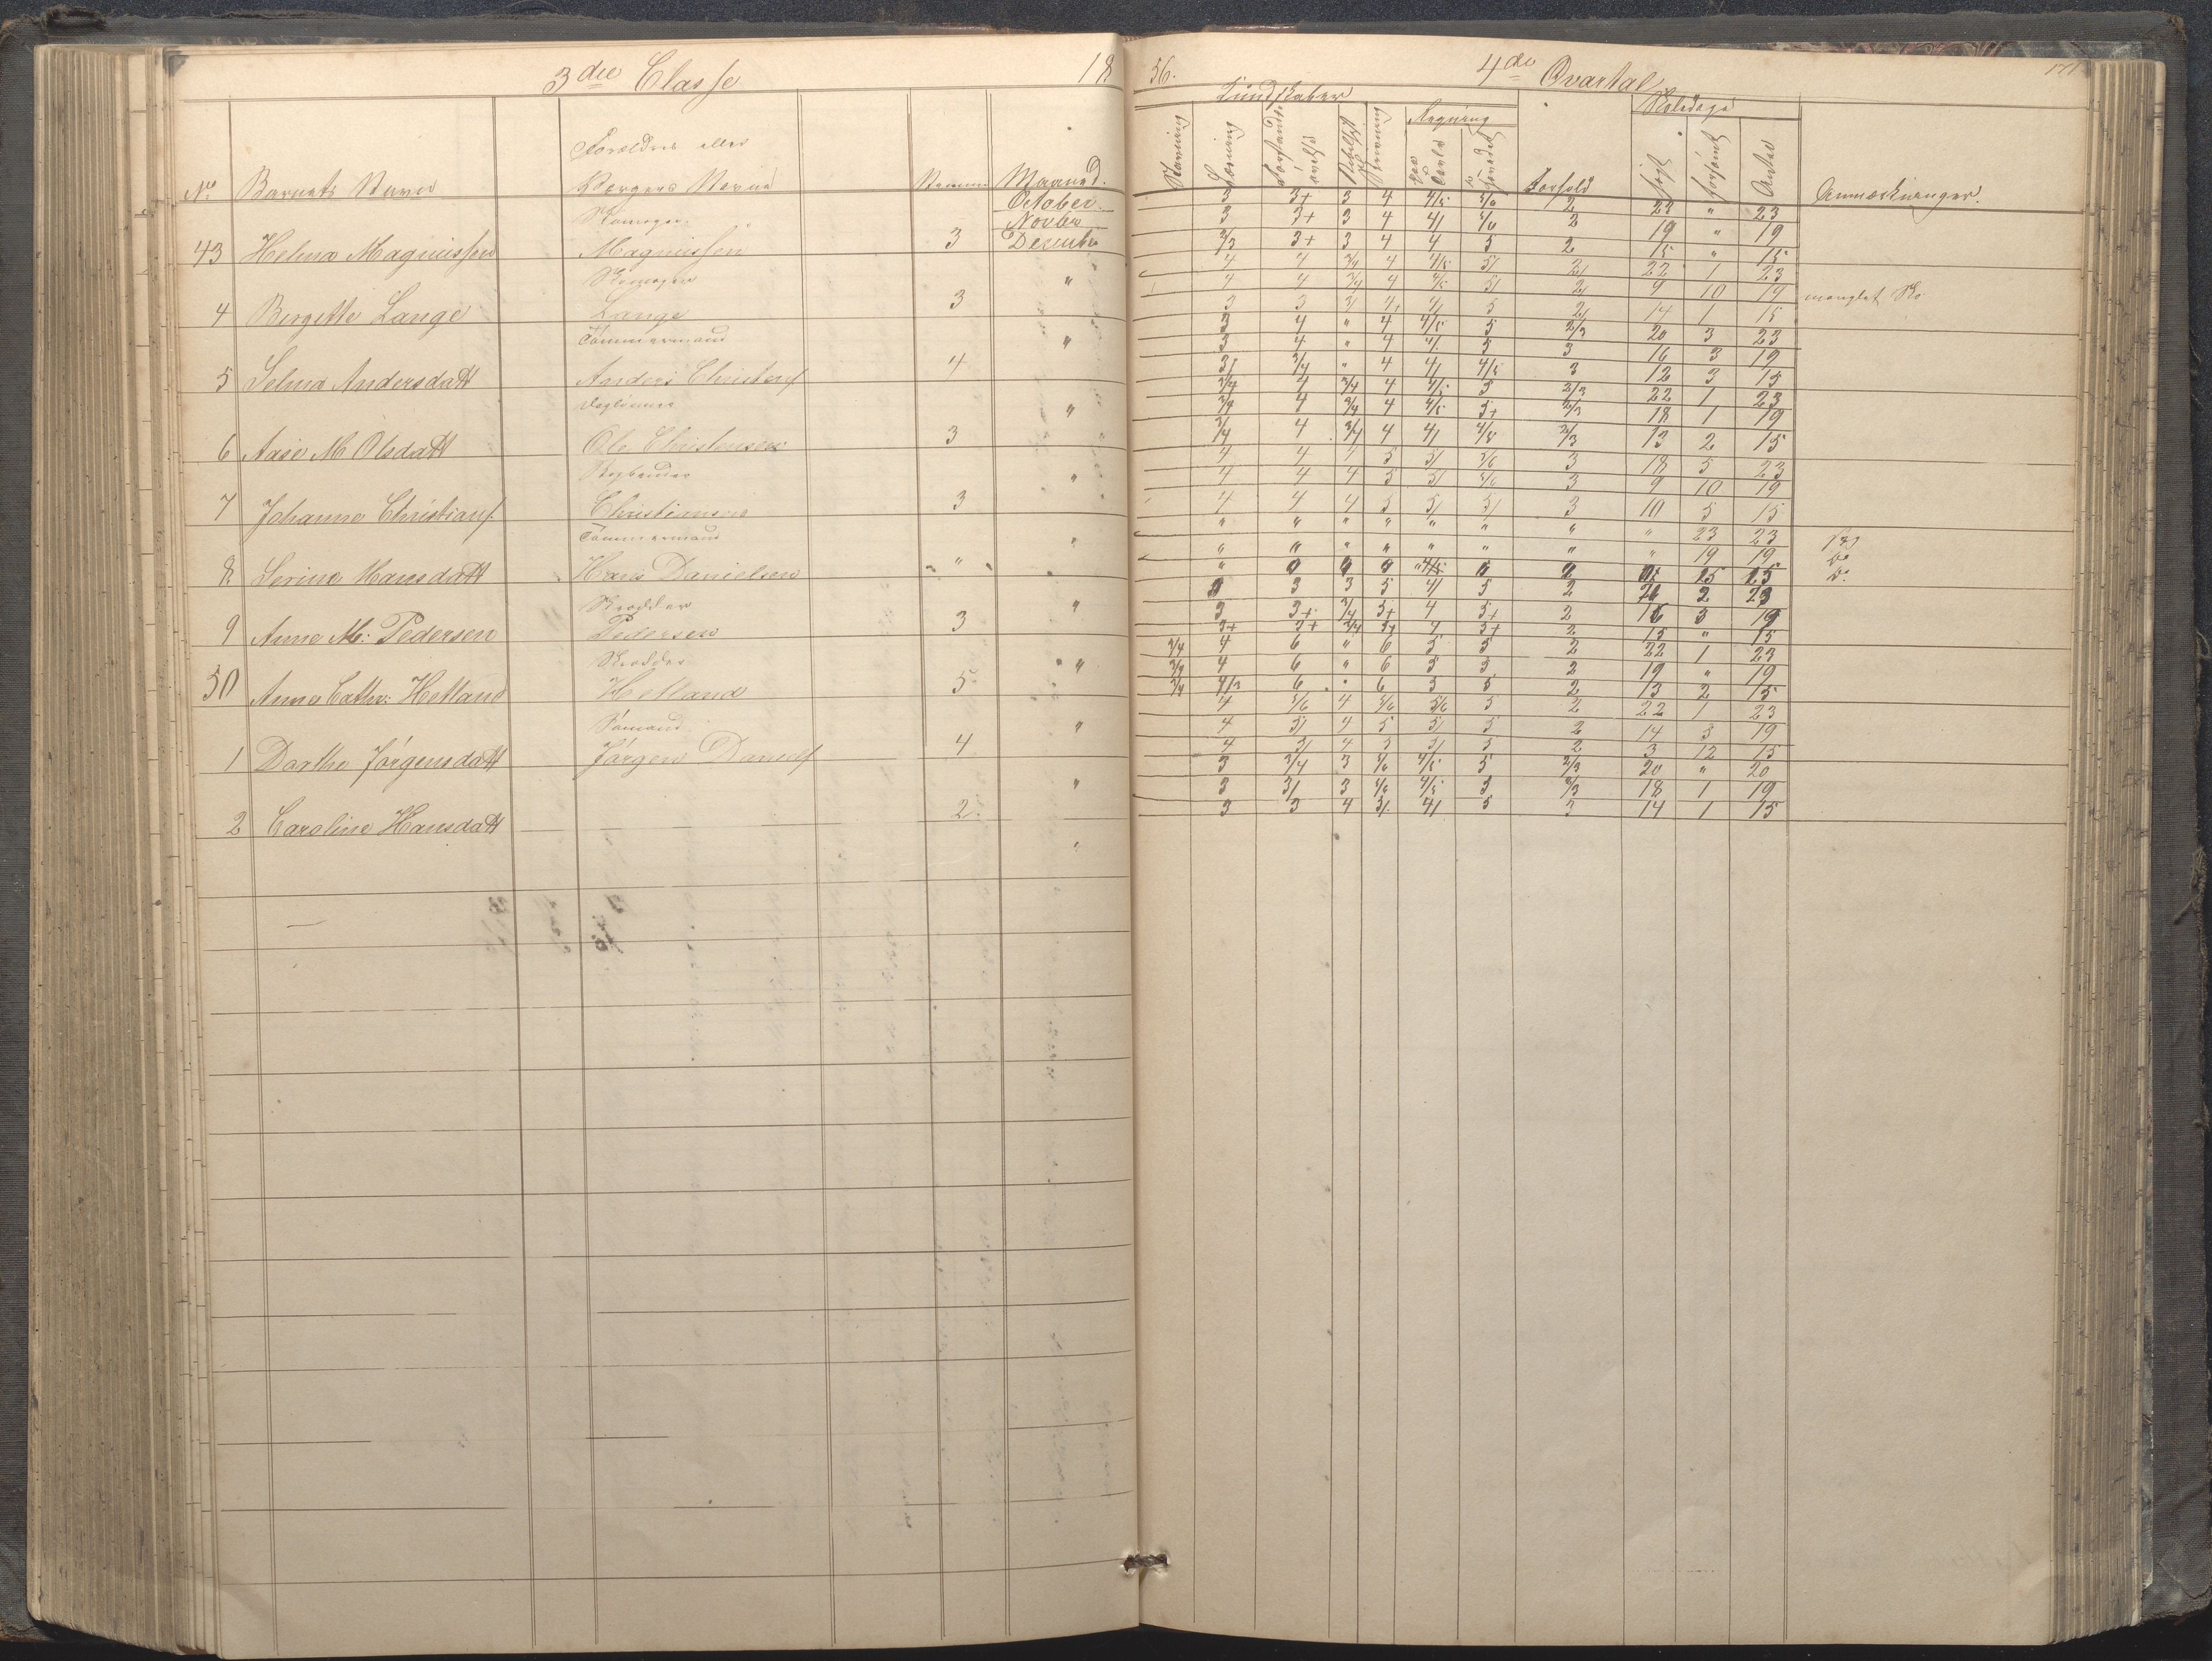 3die Classe 18
56. 4de Qvartal 171
Kundskaber Skoledage
Regning
No Barnets Navn Forældres eller Værgers Navne Stamme Maaned. Stavning Læsning Forstands øvelse Skrivning paa Tavle i Hovedet Forhold søgt forsømt Antal Anmærkninger.
October. 3 3+ 3 4 4/5 5/6 2 23 " 23
Skomager Novber 3 3+ 3 4 4/ 5/6 2 19 " 19
43 Helma Magnussen Magnussen 3 December 2/3 3+ 3 4 4 5 2 15 " 15
Skomager " 4 4 3/4 4 4/5 5/ 2/ 22 1 23
4 4 3/4 4 4/5 5/ 2/ 9 10 19 manglet Sko
4 Bergitte Lange Lange 3 3 3 3/ 4+ 4/ 5 2/ 14 1 15
Tømmermand " 3 4 " 4 4/5 5 2/3 20 3 23
3 4 " 4 4/ 5 3 16 3 19
5 Selma Andersdatt Anders Christens 4 3/ 3/4 " 4 4/ 4/5 3 12 3 15
Dagleier " 3/4 4 3/4 4 4/5 5 2/3 22 1 23
3/4 4 3/4 4 4/5 5+ 2/3 18 1 19
6 Aase M Olsdatt Ole Christensen 3 3/4 4 3/4 4 4/ 4/5 2/3 13 2 15
" 4 4 4 5 5/ 5/6 3 18 5 23
4 4 4 5 5/ 5/6 3 9 10 19
7 Johanne Christians. Christiansen 3 4 4 4 5 5/ 5/ 3 10 5 15
Tømmermand " " " " " " " " " 23 23
" " " " " " " " 19 19 Do
8 Serine Hansdatt Hans Danielsen " 15 15 Do
Skrædder " 3 3 3 5 4/ 5 2 21 2 23
3 3+ 3/4 5+ 4 5+ 2 16 3 19
9 Anne M: Pedersen Pedersen 3 3+ 3+ 3/4 5+ 4 5+ 2 15 " 15
Skrædder " 3/4 4 6 " 6 5 5 2 22 1 23
3/4 4 6 " 6 5 5 2 19 " 19
50 Anne Cathr: Hetland Hetland 5 3/4 4/3 6 " 6 5 5 2 13 2 15
Sømand " 4 5/6 4 5/6 5/6 5 2 22 1 23
4 5/ 4 5 5/ 5 2 14 5 19
1 Dorthe Jørgensdatt Jørgen Daniels 4 4 5/ 4 5 5/ 5 2 3 12 15
" 3 3/4 3 5/6 4/5 5 2/3 20 " 20
3 3/ 3 5/6 4/5 5 2/3 18 1 19
2 Caroline Hansdatt 2. 3 3 4 5/ 4/ 5 3 14 1 15
"